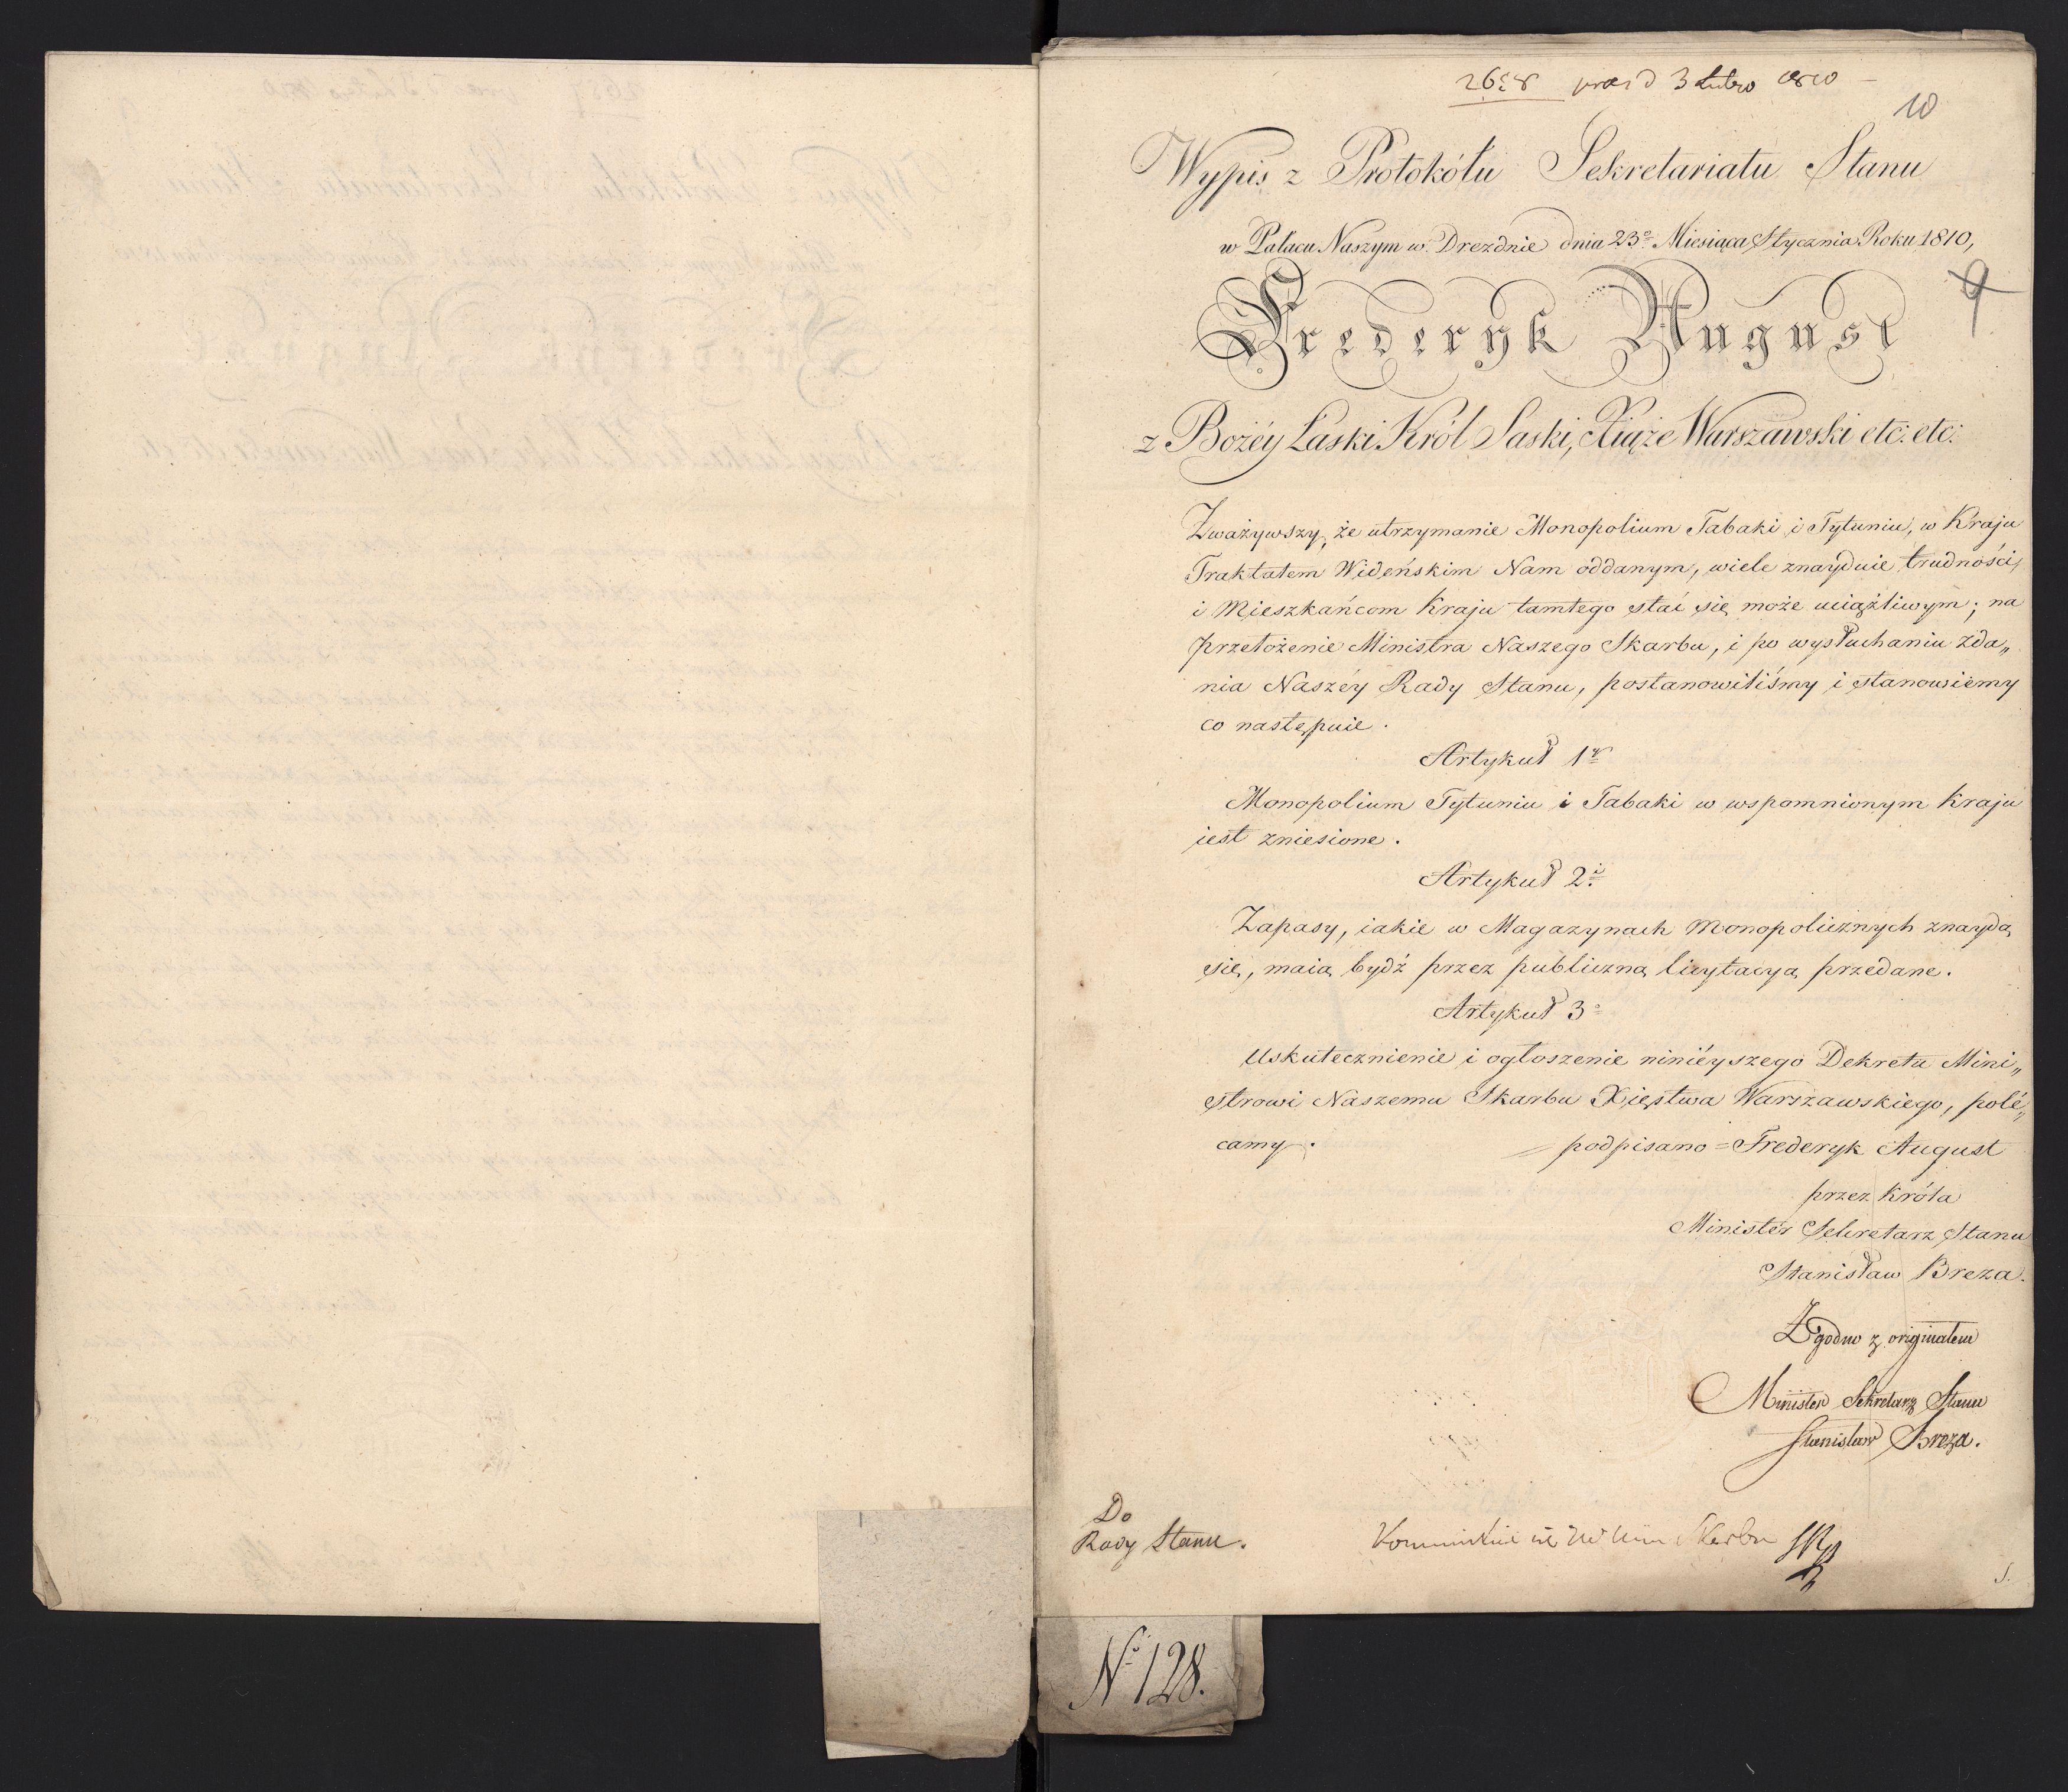 3 Lutego 1810
10
Wypis z Protokółu Sekretariatu Stanu
w Pałacu Naszym w Dreznie dnia 23º Miesiąca Stycznia Roku 1810,
9
Frederyk August
z Bożéy Łaski Król Saski, Xiąże Warszawski etc: etc:
Zważywszy, że utrzymanie Monopolium Tabaki i Tytuniu, w Kraju
Traktatem Wideńskim Nam oddanym, wiele znayduie trudności,
i Mieszkańcom Kraju tamtego stać się może uciążliwym; na
przełożenie Ministra Naszego Skarbu, i po wysłuchaniu zda„
nia Naszéy Rady Stanu, postanowiliśmy i stanowiemy
co następuie.
Artykuł 1y
Monopolium Tytuniu i Tabaki w wspomnionym Kraju
iest zniesione.
Artykuł 2i
Zapasy, iakie w Magazynach Monopolicznych znaydą
się, maią bydź przez publiczną licytacyą przedane.
Artykuł 3º
Uskutecznienie i ogłoszenie ninieyszego Dekretu Mini„
strowi Naszemu Skarbu Xięstwa Warszawskiego, polé„
camy. podpisano = Frederyk August
przez Króla
Minister Sekretarz Stanu
Stanisław Breza.
Zgodno z originałem
Minister Sekretarz Stanu
Stanisław Breza.
Do
Rady Stanu.
Skarbu
Nº 128.